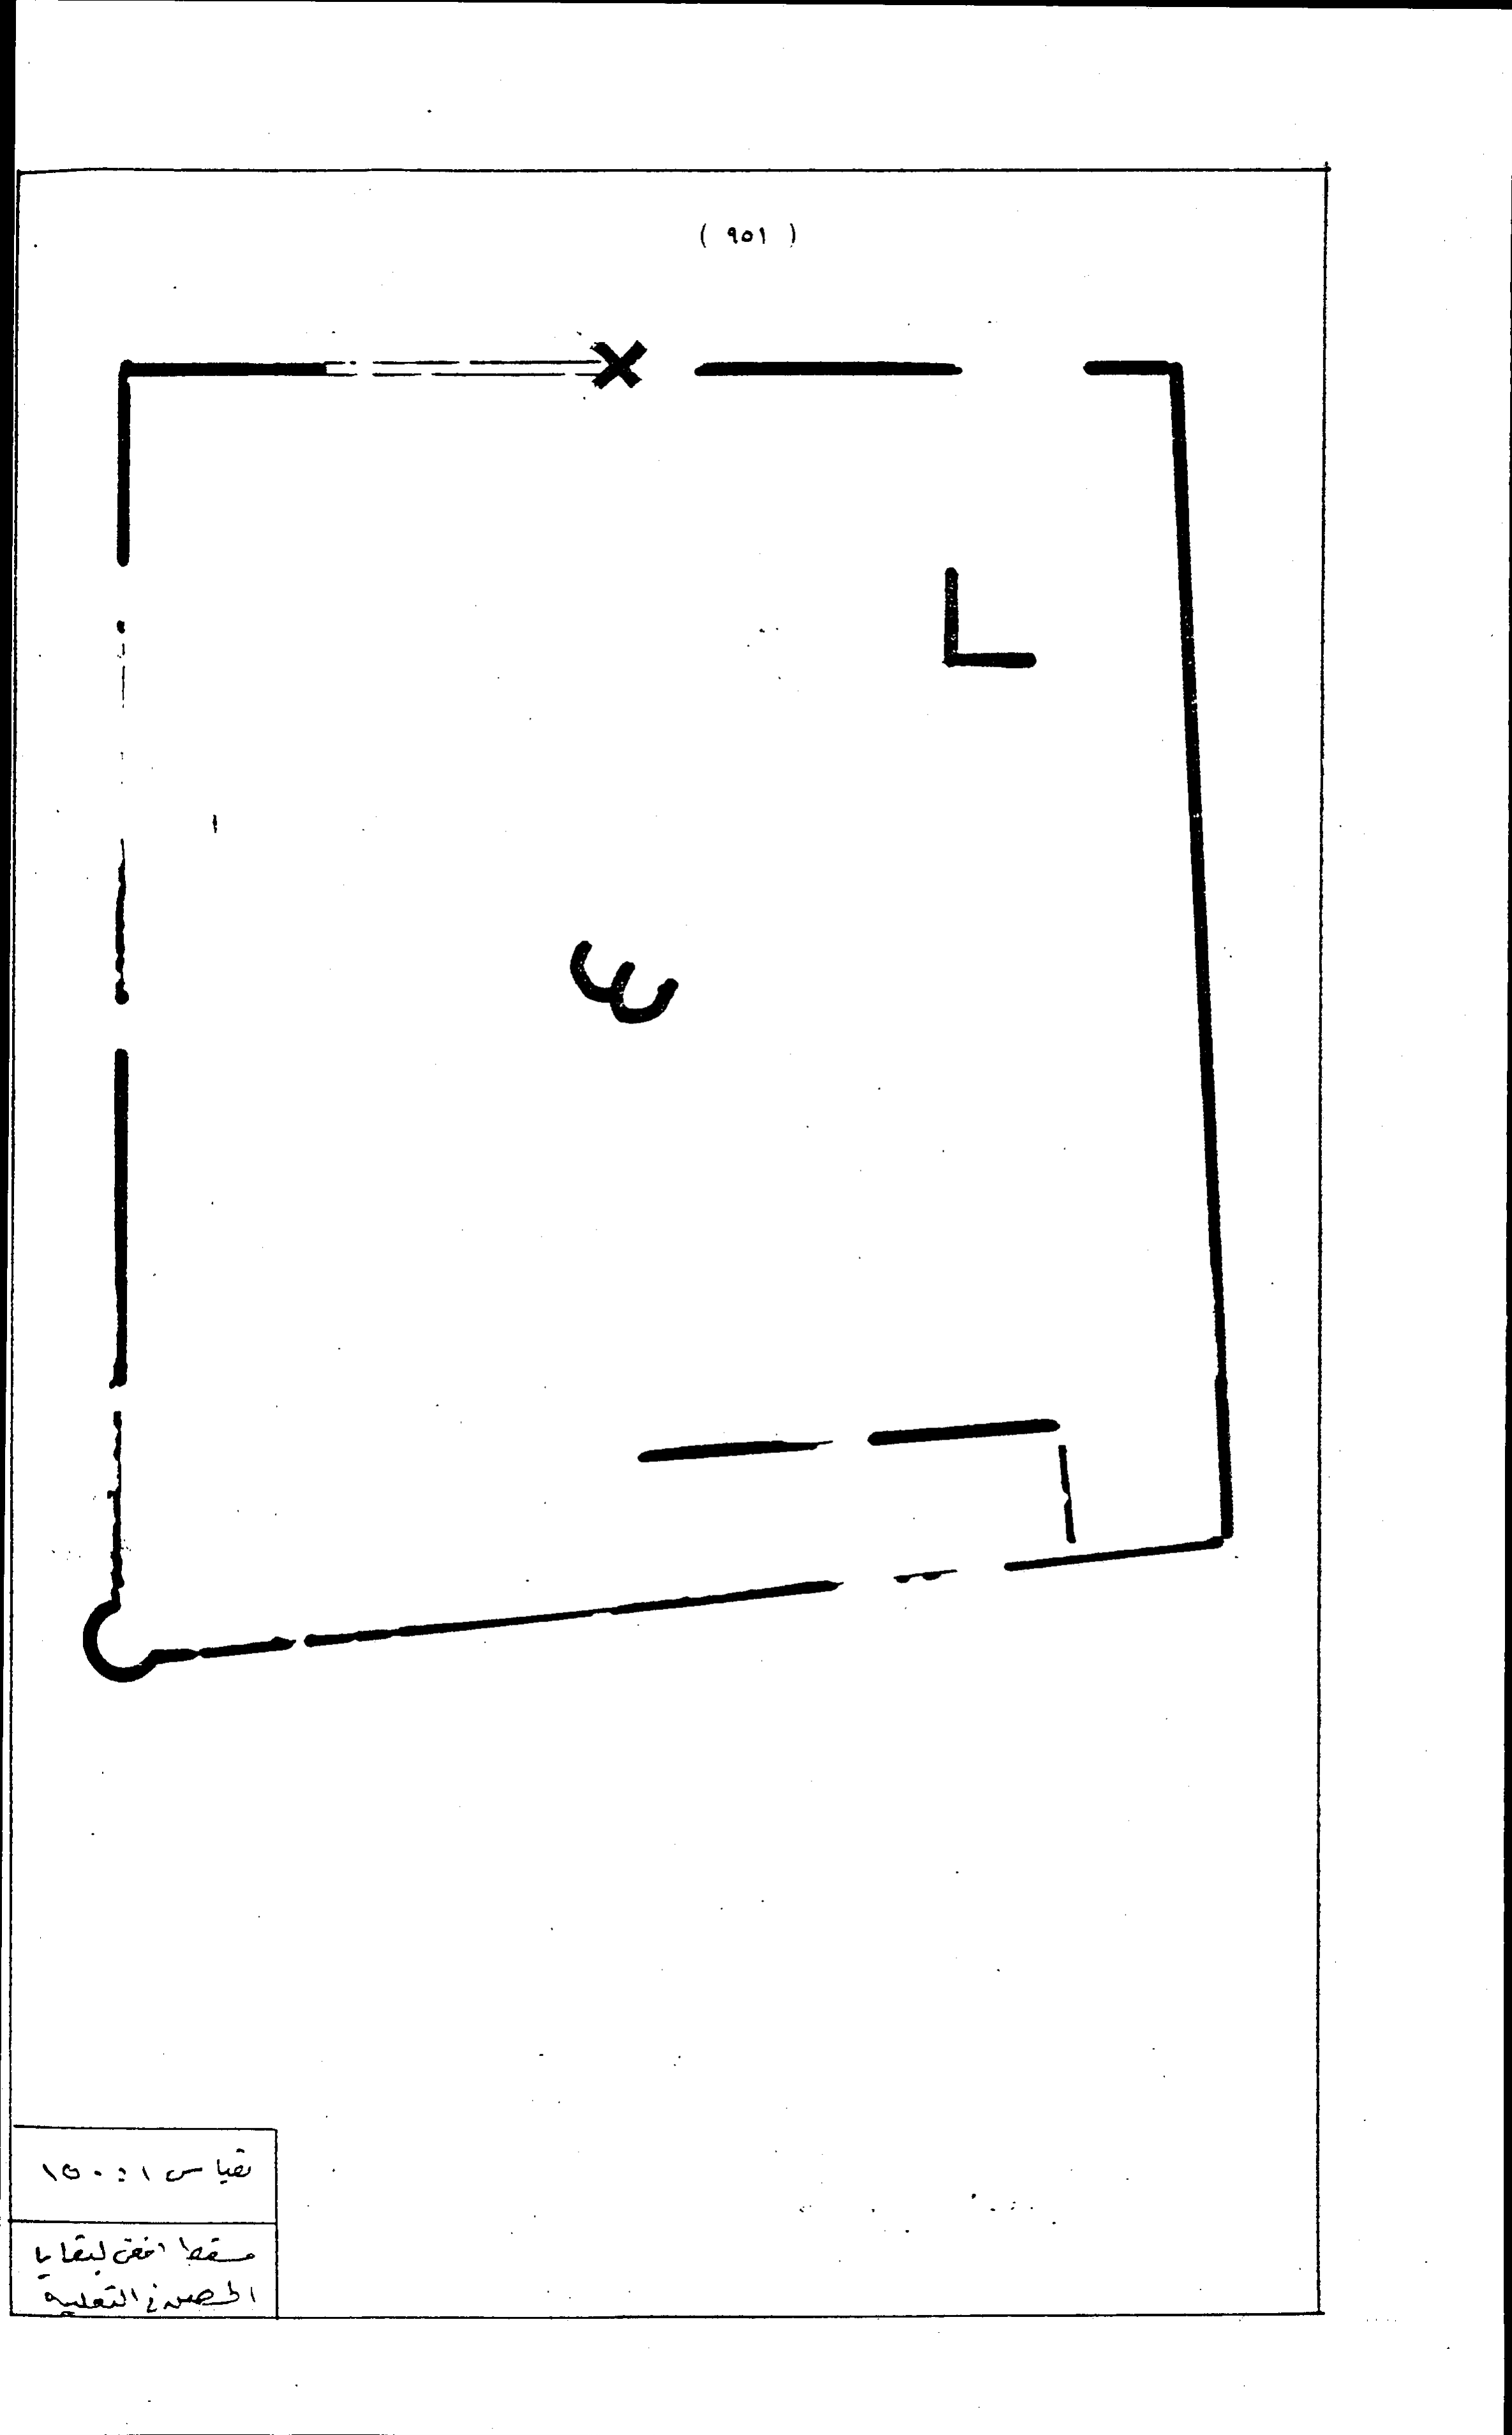 ( ٩٥١ )
مقياس ١ : ١٥٠
مسقط افقي لبقايا
الحصن في الثعلبية